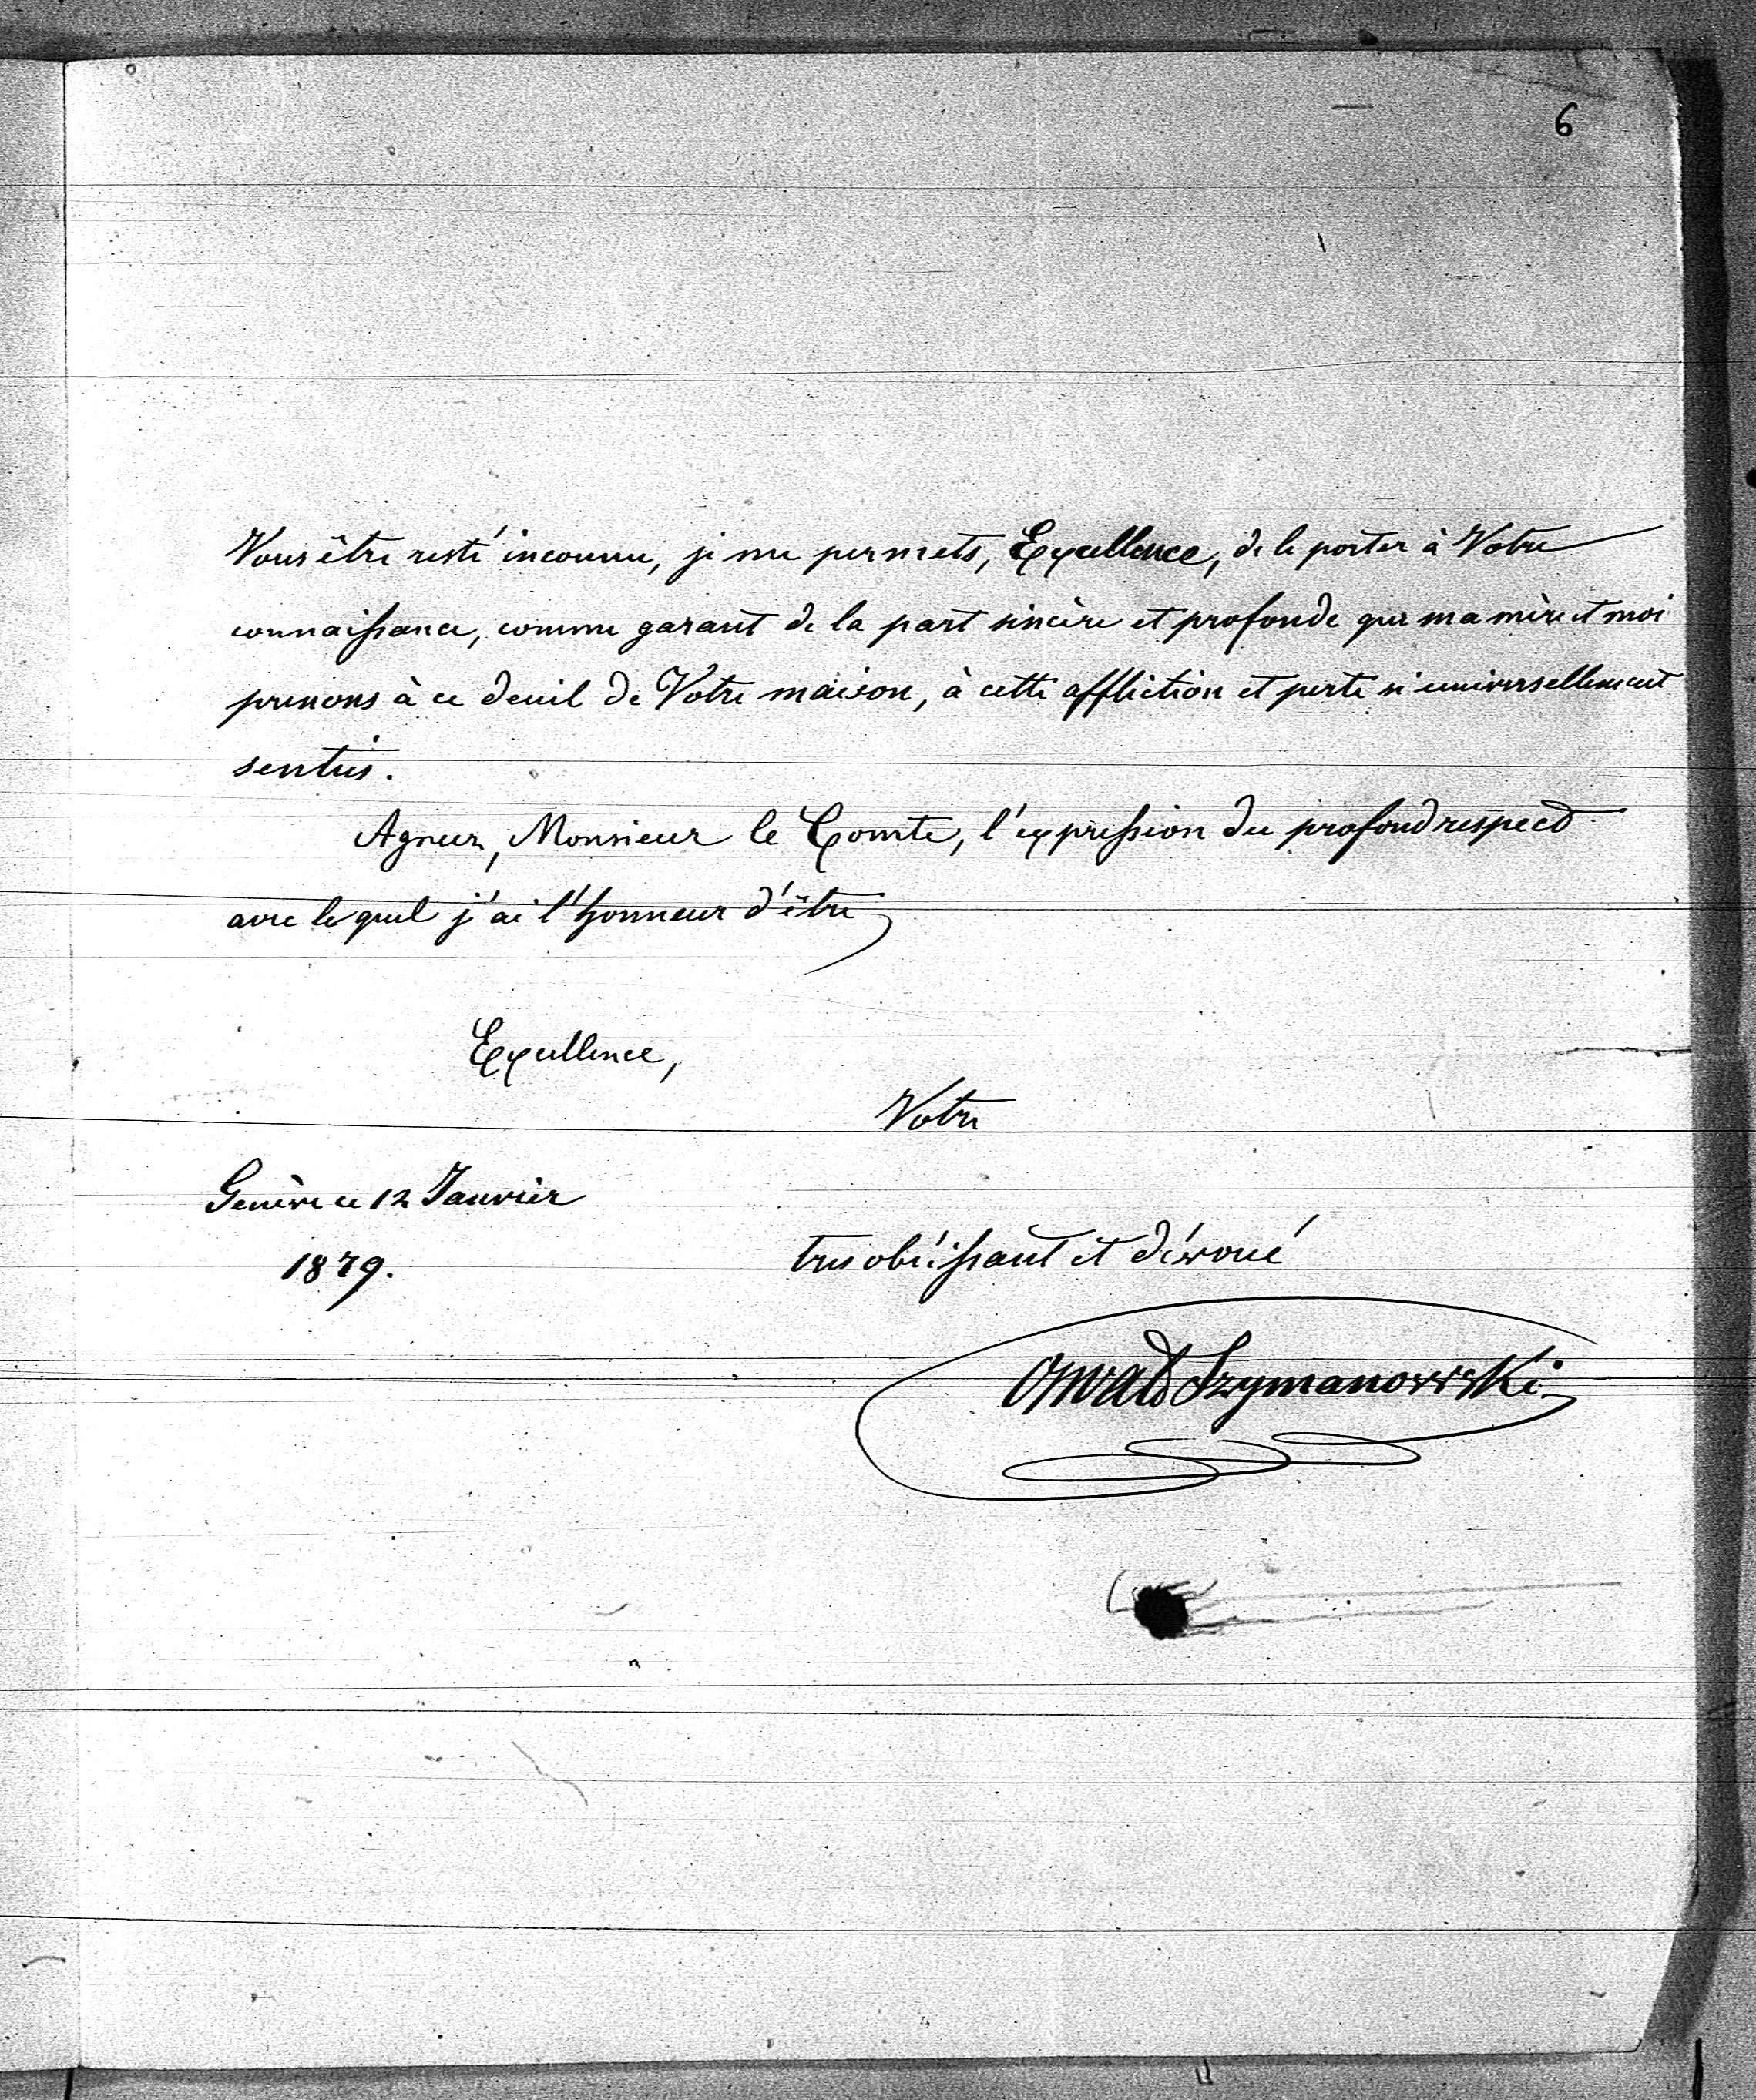 6
Vous être resté inconnu, je me permets, Excellence, de le porter à Votre
connaissance, comme garant de la part sincère et profonde que ma mère et moi
prenons à ce deuil de Votre maison, à cette affliction et perte si universellement
senties.
Agreez, Monsieur le Comte, l'expression du profond respect
avec lequel j'ai l'honneur d'être
Excellence,
Votre
Genève ce 12 Janvier
1879.
tres obéissant et dévoué
Oswald Szymanowski